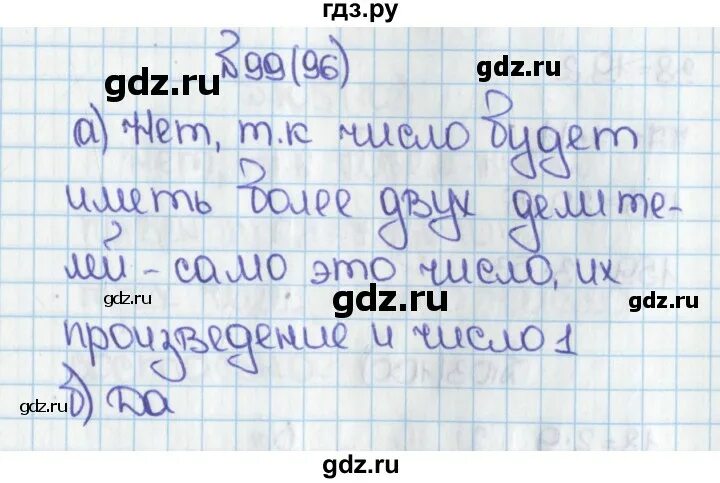 гдз.ру
№99(96)
gdz.ru
gdz.ru
а) Нет, т.к число будет
иметь более двух делите-
лей - само это число, их
gdz.ru
gdz.ru
произведение и число 1
gdz.ru
б) Да
gdz.ru
gdz.ru